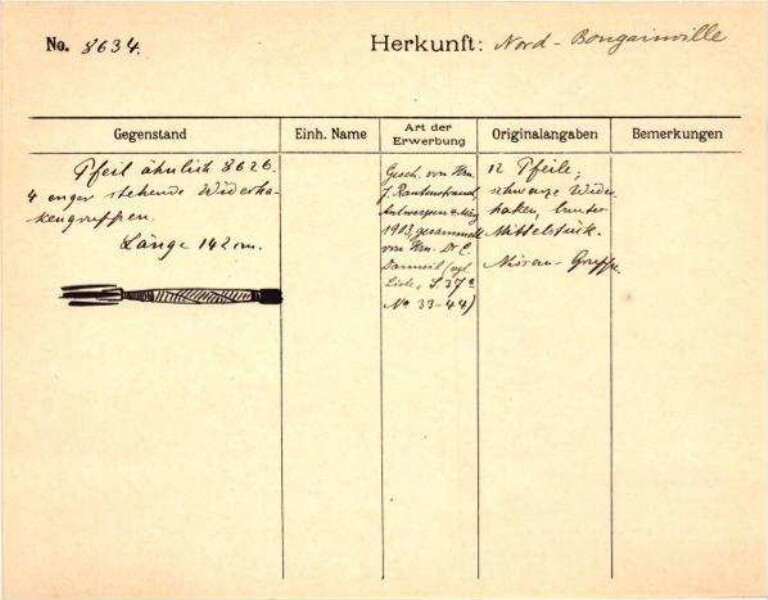 No. 8634.
Herkunft: Nord - Bougainville
Gegenstand
Einh. Name
Art der Erwerbung
Originalangaben
Bemerkungen
Pfeil ähnlich 8626.
4 enger stehende Widerha-
kengruppen.
Länge 142 cm.
Gesch. von Hrn.
J. Rautenstrauch,
Antwerpen 4. März
1903, gesammelt
von Hrn. Dr E.
(vgl.
Liste, S. 37
No 33-44)
12 Pfeile,
schwarze Wider-
haken, bunter
Mittelstück.
Gruppe.